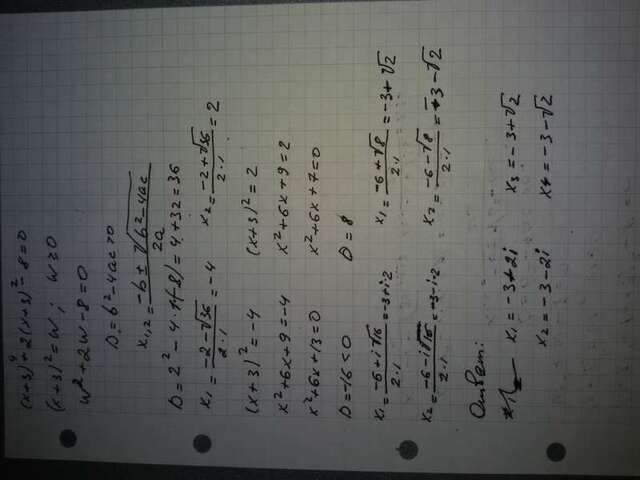 (x+3)⁴+2(x+3)²-8=0
(x+3)²=w; w≥0
w²+2w-8=0
D=b²-4ac>0
x₁,₂=(-b±√(b²-4ac))/2a
D=2²-4·1·(-8)=4+32=36
x₁=(-2-√36)/(2·1)=-4 x₂=(-2+√36)/(2·1)=2
(x+3)²=-4 (x+3)²=2
x²+6x+9=-4 x²+6x+9=2
x²+6x+13=0 x²+6x+7=0
D=-16<0 D=8
x₁=(-6+i√16)/(2·1)=-3+i·2 x₁=(-6+√8)/(2·1)=-3+√2
x₂=(-6-i√16)/(2·1)=-3-i·2 x₂=(-6-√8)/(2·1)=-3-√2
Ответ:
x₁=-3+2i x₃=-3+√2
x₂=-3-2i x₄=-3-√2